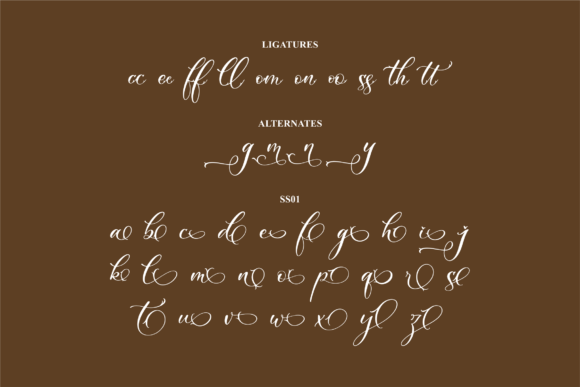 LIGATURES
cc ee ff ll om on oo ss th tt
ALTERNATES
g m n y
SS01
a b c d e f g h i j
k l m n o p q r s
t u v w x y z